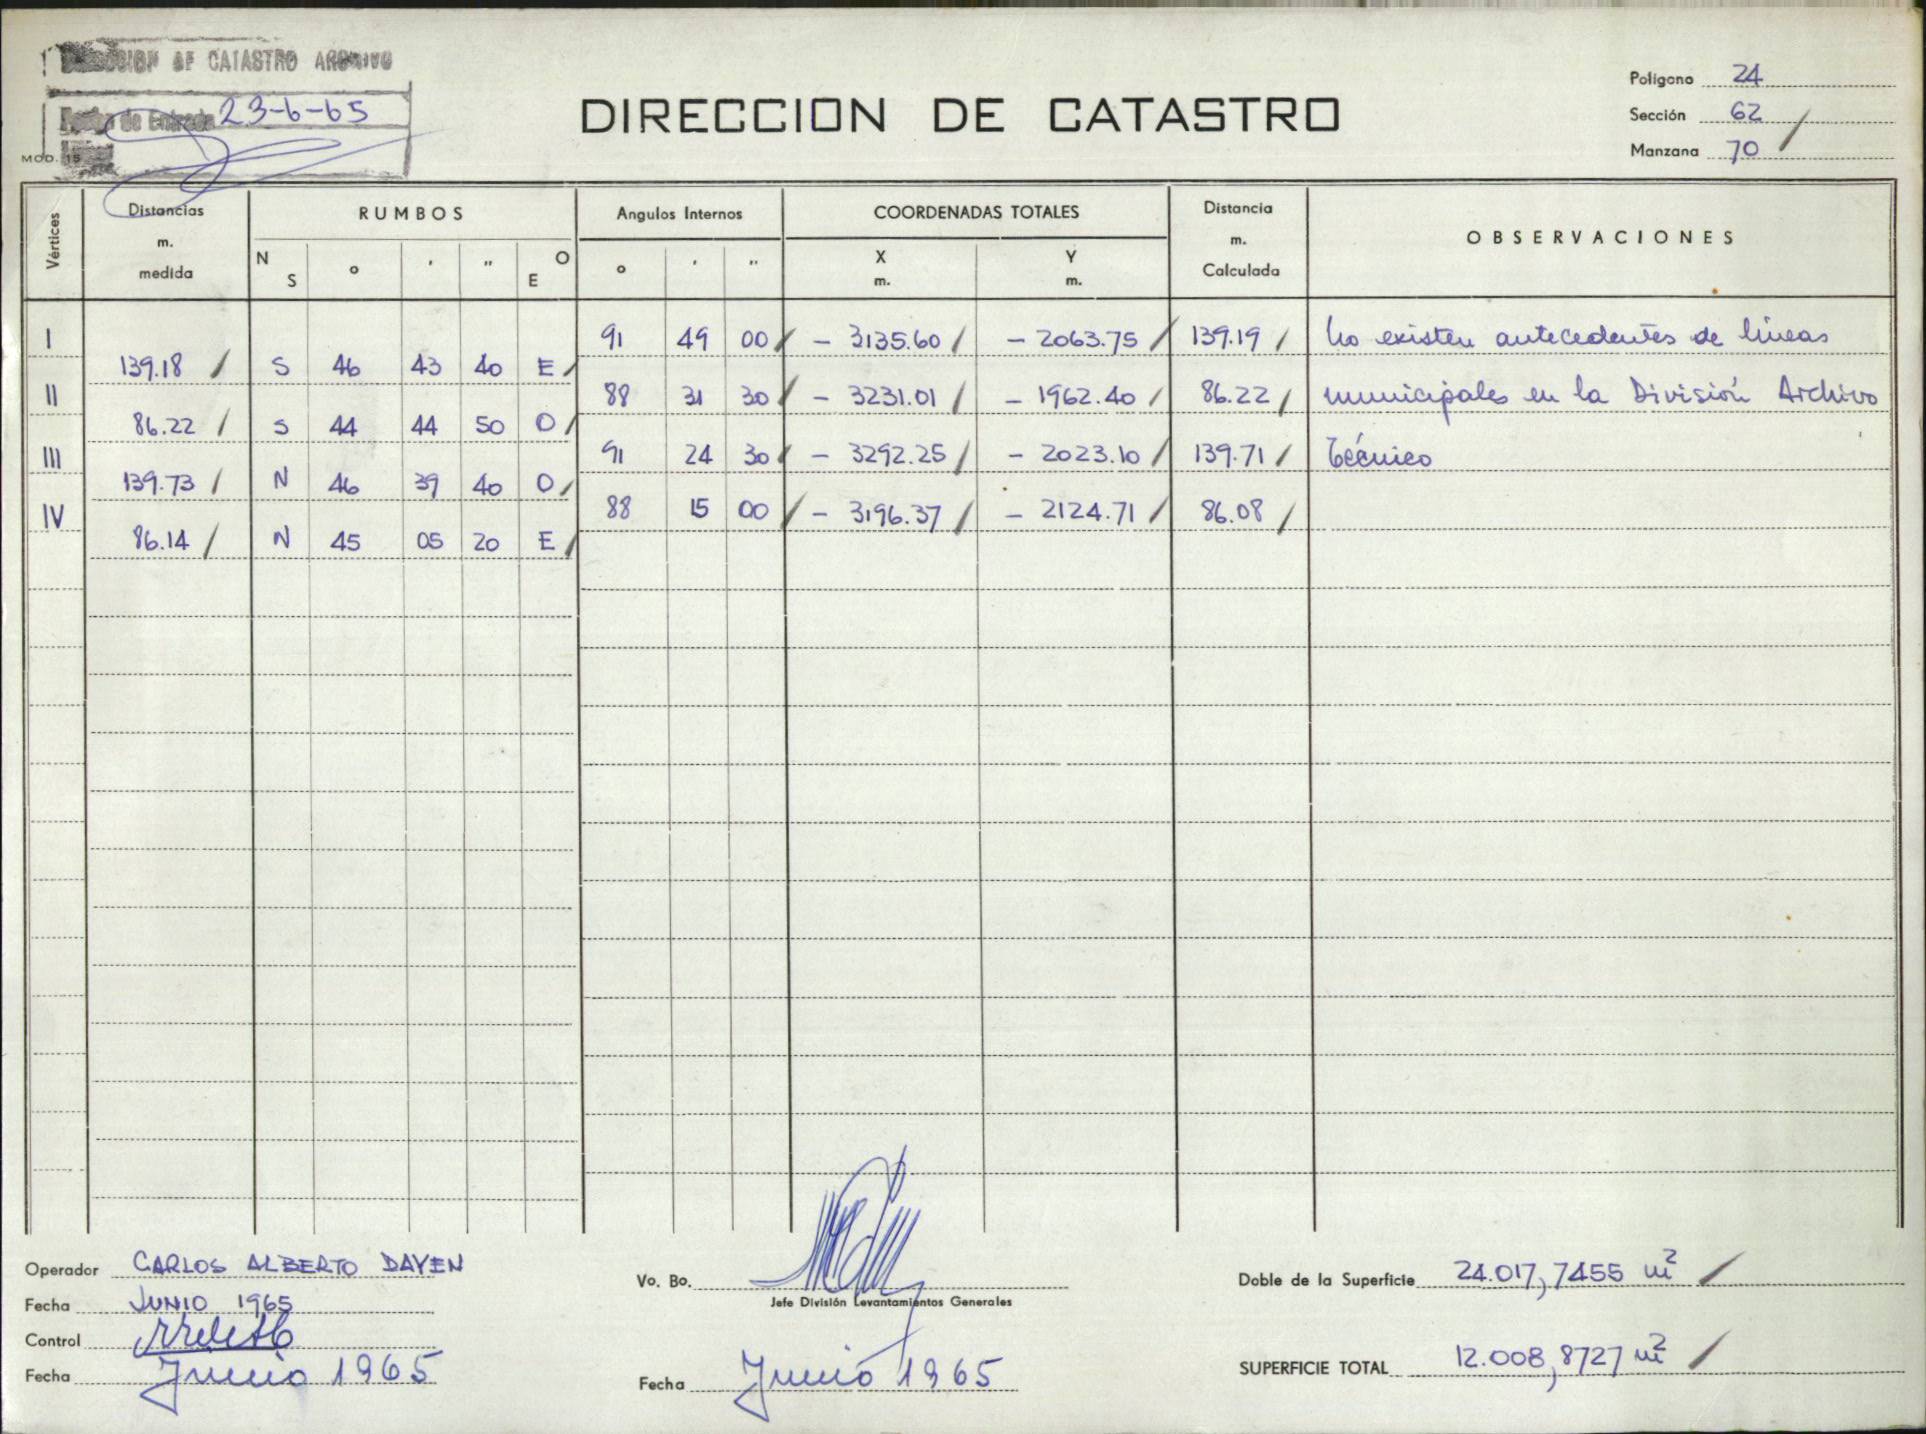 DIRECCION DE CATASTRO ARCHIVO
Fecha de Entrada 23-6-65
MOD. 15
DIRECCION DE CATASTRO
Polígono 24
Sección 62
Manzana 70
Vértices
Distancias m. medida
RUMBOS
N S ° ' " O E
Angulos Internos
° ' "
COORDENADAS TOTALES
X m. Y m.
Distancia m. Calculada
OBSERVACIONES
I 91 49 00 - 3135.60 - 2063.75 139.19 No existen antecedentes de líneas
139.18 S 46 43 40 E
II 88 31 30 - 3231.01 - 1962.40 86.22 municipales en la División Archivo
86.22 S 44 44 50 O
III 91 24 30 - 3292.25 - 2023.10 139.71 Técnico
139.73 N 46 39 40 O
IV 88 15 00 - 3196.37 - 2124.71 86.08
86.14 N 45 05 20 E
Operador CARLOS ALBERTO DAYEN
Fecha JUNIO 1965
Control
Fecha Junio 1965
Vo. Bo.
Jefe División Levantamientos Generales
Fecha Junio 1965
Doble de la Superficie 24.017,7455 m²
SUPERFICIE TOTAL 12.008,8727 m²